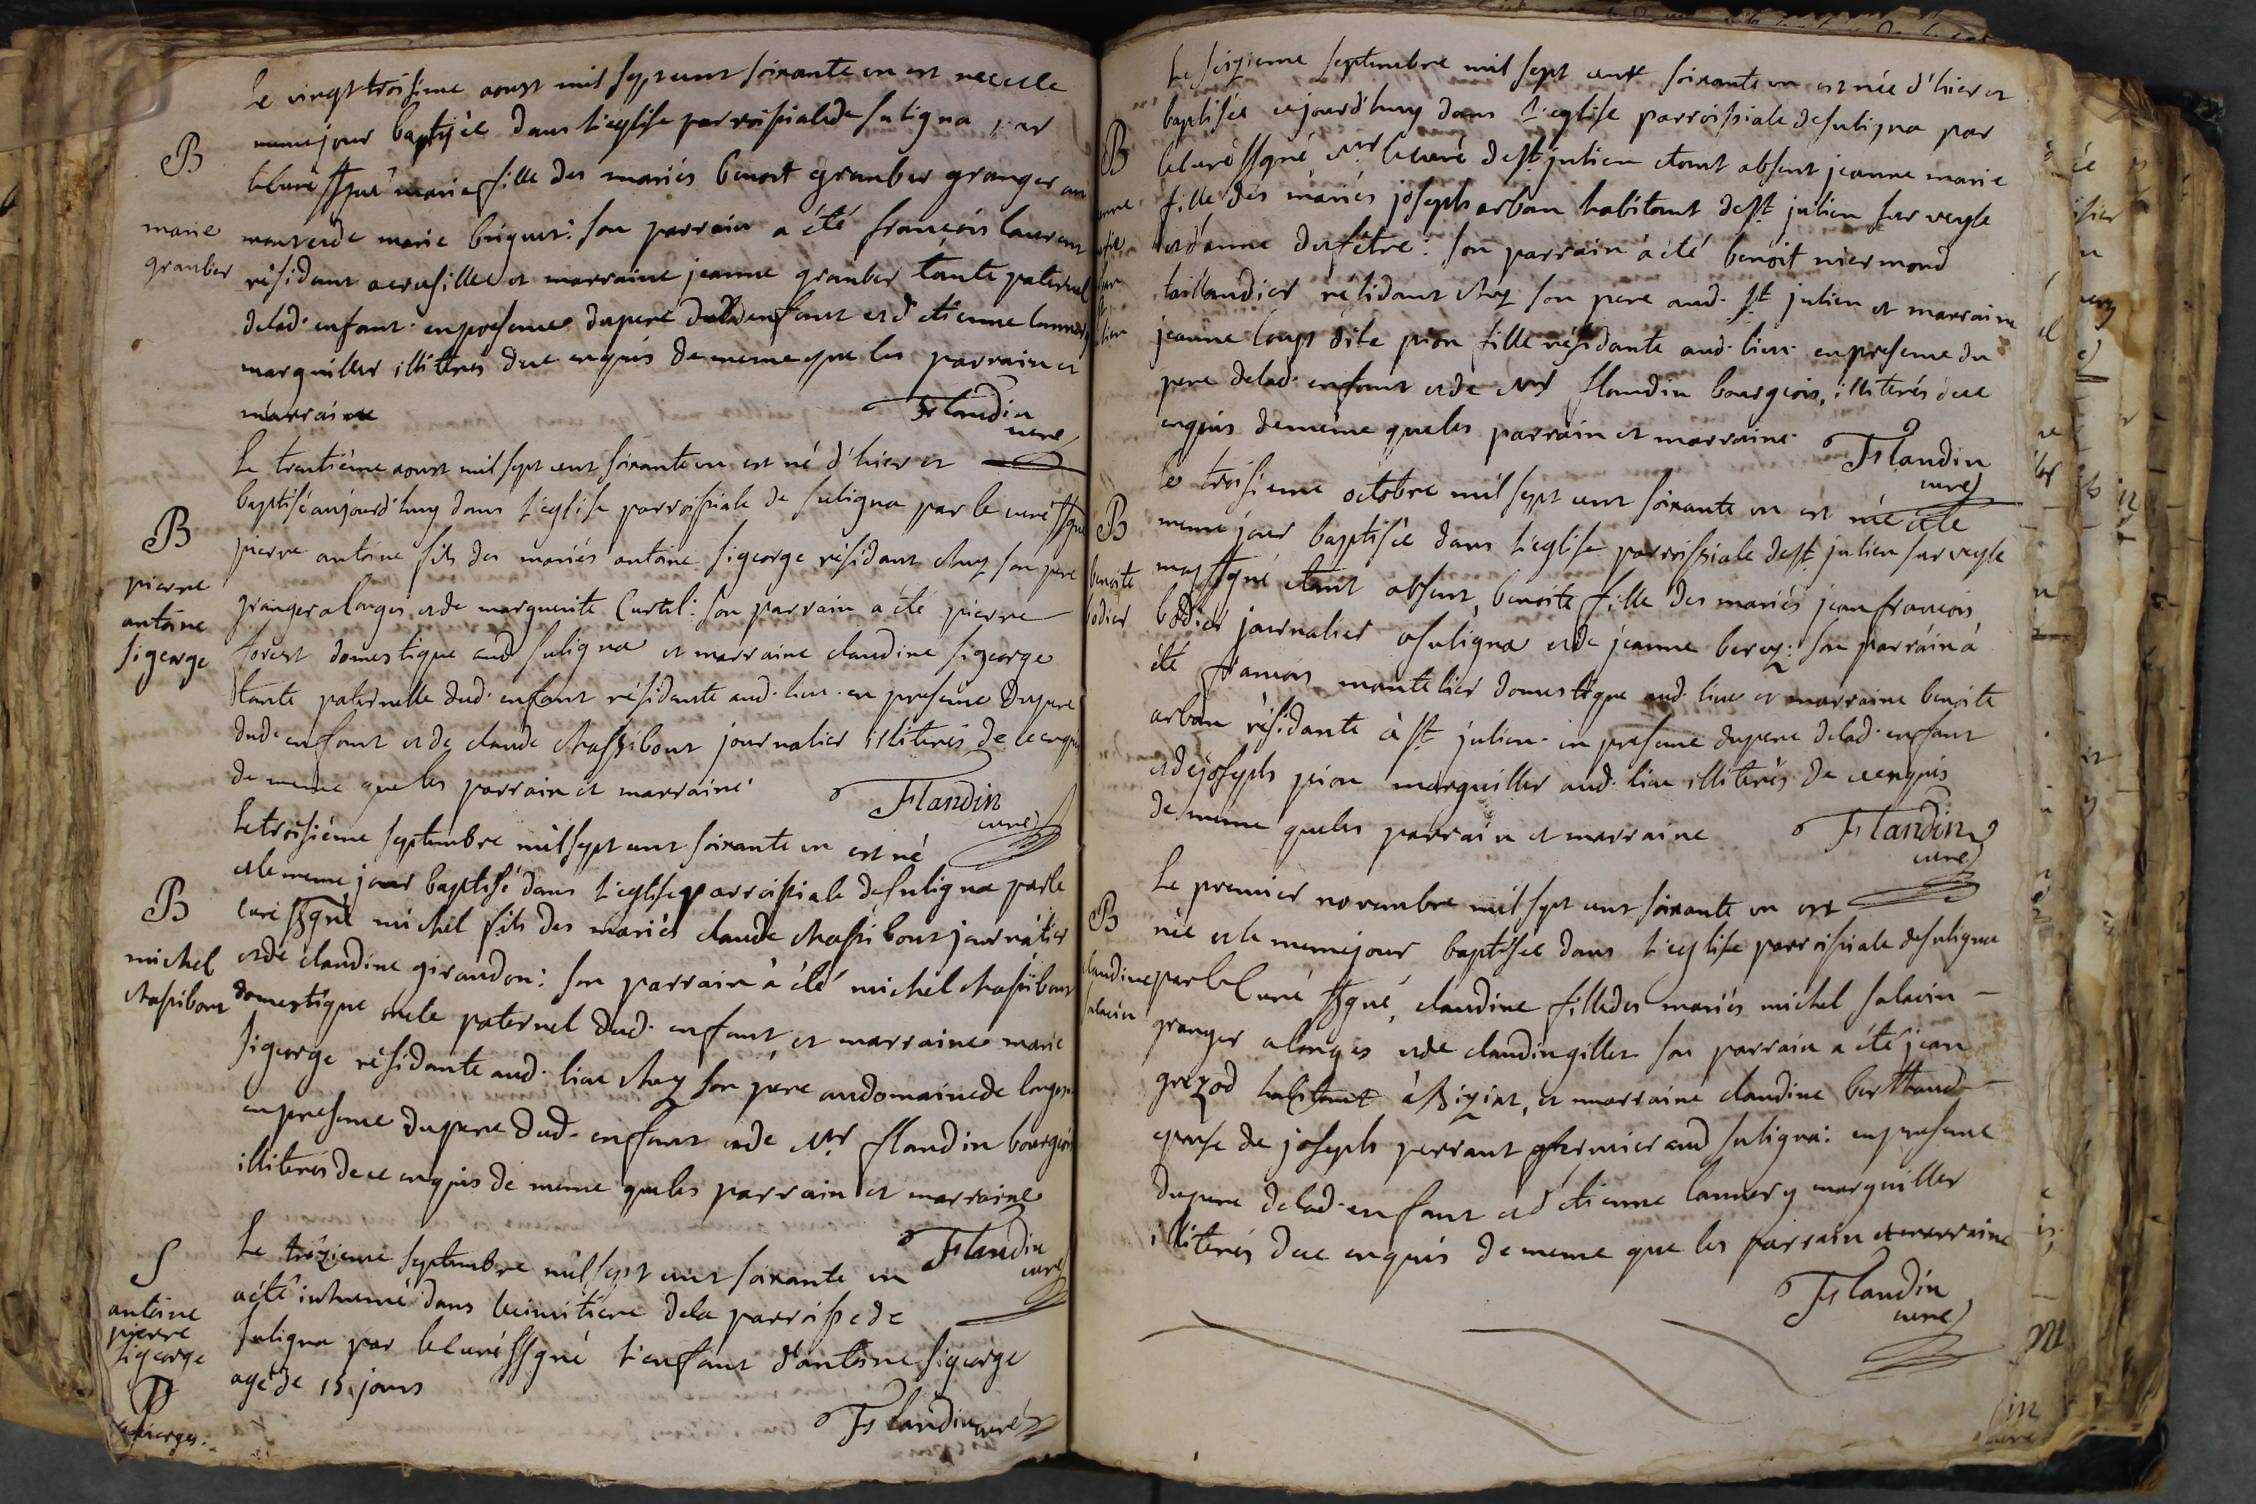 Le vingt troisieme aoust mil sept cent soixante un est nee et le
meme jour baptisée dans l'eglise parroissiale de suligna par
B
le curé ssgné marie fille des mariés benoit granber granger au
marie
granber
mont et de marie briguet: son parrain a été françois laurent
résidant a et marraine jeanne granber tante paternel
delad. enfant. en presence du pere delad. enfant et d'etienne lannery
marguiller illiterés de ce enquis de meme que les parrain et
marraine
Flandin
curé
Le trentiéme aoust mil sept cent soixante un est né d'hier et
baptisé aujourd'huy dans l'eglise parroissiale de suligna par le curé ssgné
B
pierre
antoine
sigeorge
pierre antoine fils des mariés antoine sigeorge résidant chez son pere
granger a longes et de marguerite Curtil: son parrain a été pierre
forest domestique aud suligna et marraine claudine sigeorge
tante paternelle dud. enfant résidante aud. lieu. en presence du pere
dud. enfant et de claude chassibout journalier illiterés de ce enquis
de meme que les parrain et marraine.
Flandin
curé
Le troisiéme septembre mil sept cent soixante un est né
et le meme jour baptisé dans l'eglise parroissiale de suligna par le
B
michel
chassibout
curé ssgné michel fils des mariés claude chassibout journalier
et de claudine girandon: son parrain a été michel chassibout
domestique oncle paternel dud. enfant et marraine marie
sigeorge résidante aud. lieu chez son pere au domaine de longes
en presence du pere dud. enfant et de Mr flandin bourgeois
illiterés de ce enquis de meme que les parrain et marraine
Flandin
curé
S
antoine
pierre
sigeorge
Le trézieme septembre mil sept cent soixante un
a été inhumé dans le cimitiere de la parroisse de
suligna par le curé ssgné l'enfant d'antoine sigeorge
agé de 15 jours
Flandin curé
Le seizieme septembre mil sept cent soixante un est née d'hier et
baptisée ce jourd'huy dans l'eglise parroissiale de suligna par
B
le curé ssgné Mr le curé de st. julien etant absent jeanne marie
fille des mariés joseph arban habitant de st julien sur veyle
et d'anne dufêtre: son parrain a été benoit niermond
taillandier résidant chez son pere aud. st julien et marraine
jeanne loup dite pion fille résidante aud. lieu. en presence du
pere delad. enfant et de Mr flandin bourgeois, illiterés de ce
enquis de meme que les parrain et marraine.
Flandin
curé
Le troisieme octobre mil sept cent soixante un est née et le
meme jour baptisée dans l'eglise parroissiale de st julien sur veyle
B
benoite
bodier
moy ssgné etant absent, benoite fille des mariés jean françois
bodier journalier a suligna et de jeanne berey: son parrain a
été françois mantelier domestique aud. lieu et marraine benoite
arban résidante à st julien. en presence du pere delad. enfant
et de joseph pion marguiller aud. lieu illiterés de ce enquis
de meme que les parrain et marraine
Flandin
curé
Le premier novembre mil sept cent soixante un est
née et le meme jour baptisée dans l'eglise parroissiale de suligna
B
claudine
salavin
par le Curé ssgné, claudine fille des mariés michel salavin
granger a longes et de claudin gillet. son parrain a été jean
grezod habitant à Biziat, et marraine claudine berthaud
epouse de joseph perrant fermier aud suligna: en presence
du pere delad. enfant et d'etienne lannery marguiller
illiterés de ce enquis de meme que les parrain et marraine
Flandin
curé